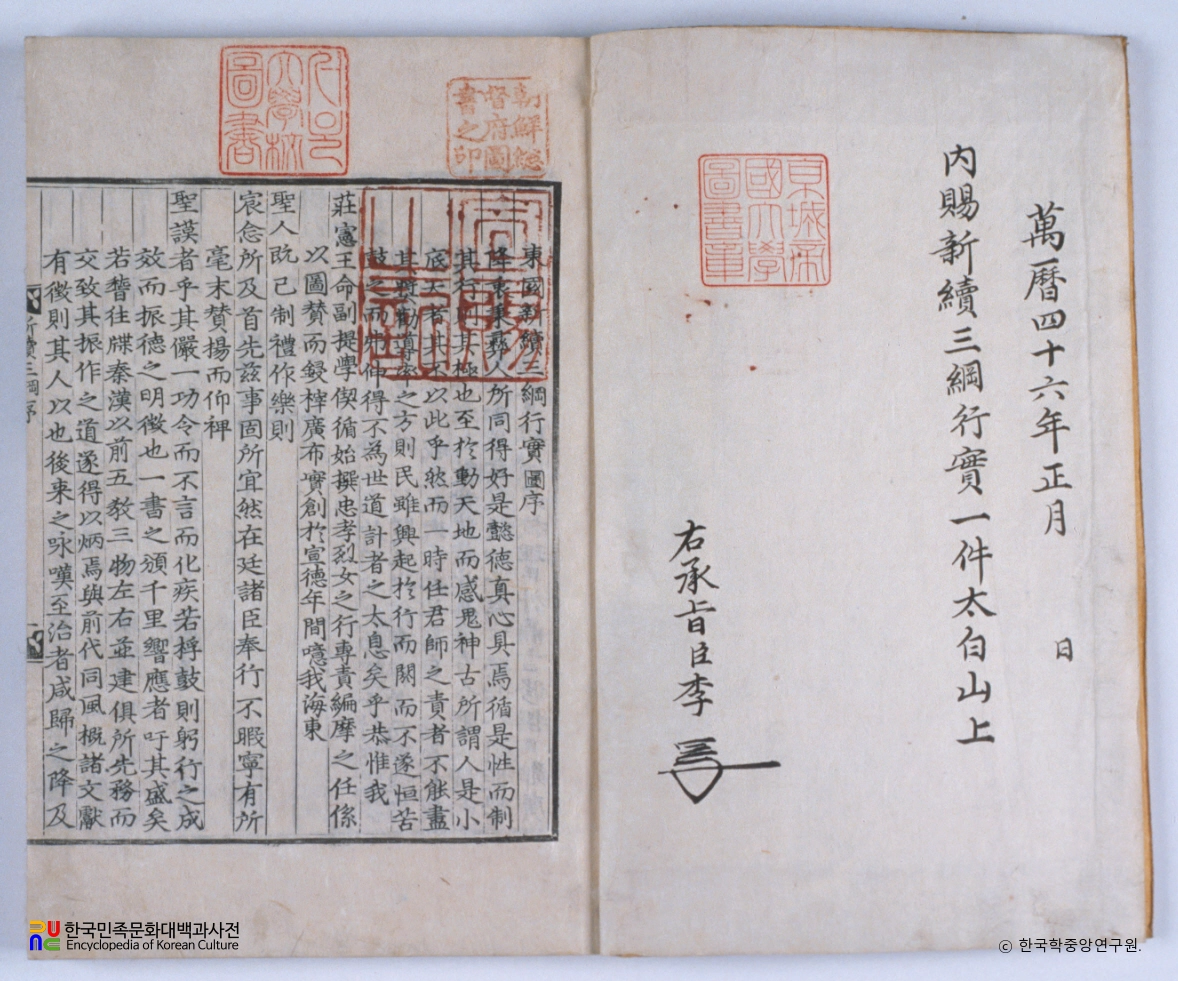 萬曆四十六年正月 日
內賜新續三綱行實一件太白山上
右承旨臣李
京城帝國大學圖書章
朝鮮總督府圖書之印
서울大學校圖書
東國新續三綱行實圖序
降衷秉彝人所同得好是懿德真心具焉循是性而制
其行即其極也至於動天地而感鬼神古所謂人是小
底天者其不以此乎然而一時任君師之責者不能盡
其獎勸導率之方則民雖興起於行而闕而不遂恒苦
鼓之而 仰得不為世道計者之太息矣乎恭惟我
莊憲王命副提學偰循始撰忠孝烈女之行專責編摩之任係
以圖贊而鋟榟廣布實創於宣德年間噫我海東
聖人既已制禮作樂則
宸念所及首先茲事固所宜然在廷諸臣奉行不暇寧有所
毫末贊揚而仰裨
聖謨者乎其儼一功令而不言而化疾若桴鼓則躬行之成
效而振德之明徵也一書之頒千里響應者吁其盛矣
若瞽往牒秦漢以前五教三物左右並建俱所先務而
交致其振作之道遂得以炳焉與前代同風概諸文獻
有徵則其人以也後來之咏嘆至治者咸歸之降及
新續三綱序
한국민족문화대백과사전
Encyclopedia of Korean Culture
© 한국학중앙연구원.